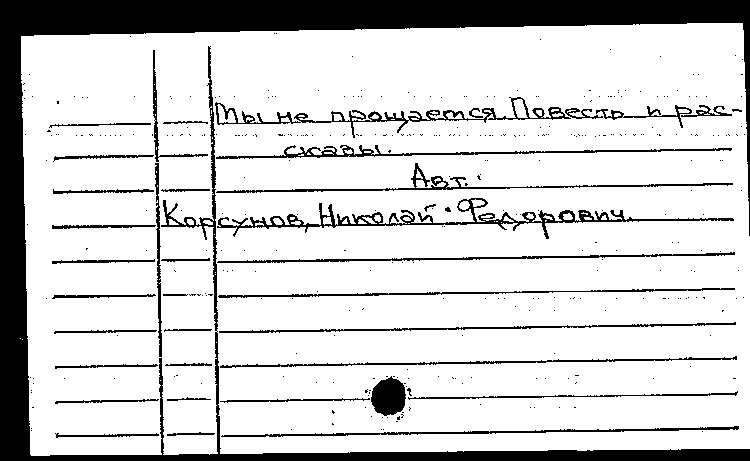 Мы не прощаемся. Повесть и рас-
сказы.
Авт.:
Корсунов, Николай Федорович.